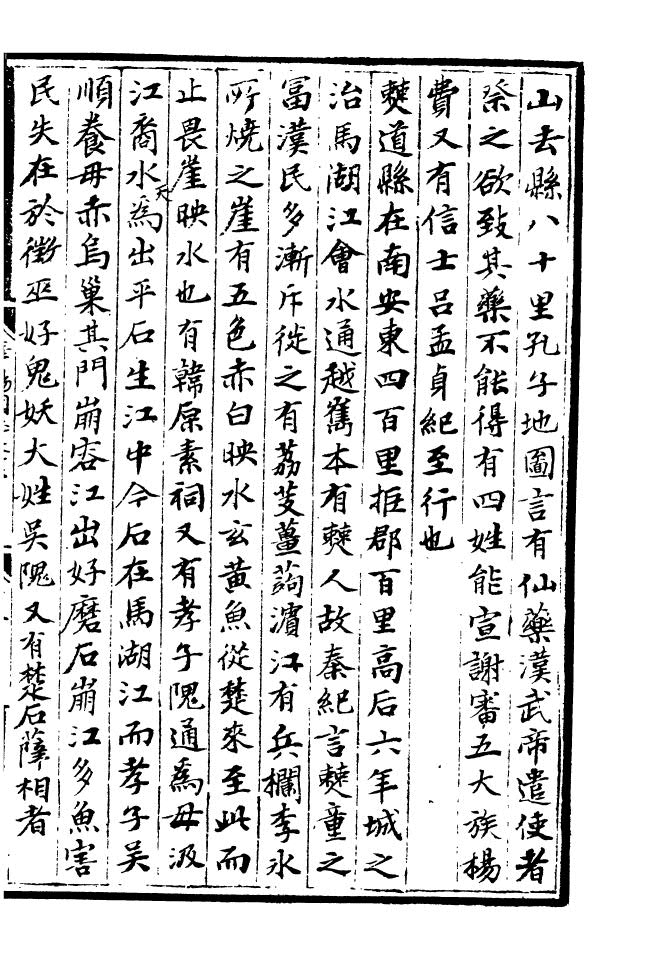 山去縣八十里孔子地圖言有仙藥漢武帝遣使者
祭之欲致其藥不能得有四姓能宣謝審五大族楊
費又有信士呂孟貞紀至行也
僰道縣在南安東四百里拒郡百里高后六年城之
治馬湖江會水通越雟本有僰人故秦紀言僰童之
富漢民多漸斥徙之有荔芰薑蒟濱江有兵欄李氷
所燒之崖有五色赤白映水玄黃魚從楚來至此而
止畏崖映水也有韓原素祠又有孝子隗通爲母汲
江裔水天爲出平石生江中今石在馬湖江而孝子吳
順養母赤烏巢其門崩容江出好磨石崩江多魚害
民失在於徵巫好鬼妖大姓吳隗又有楚石薩相者